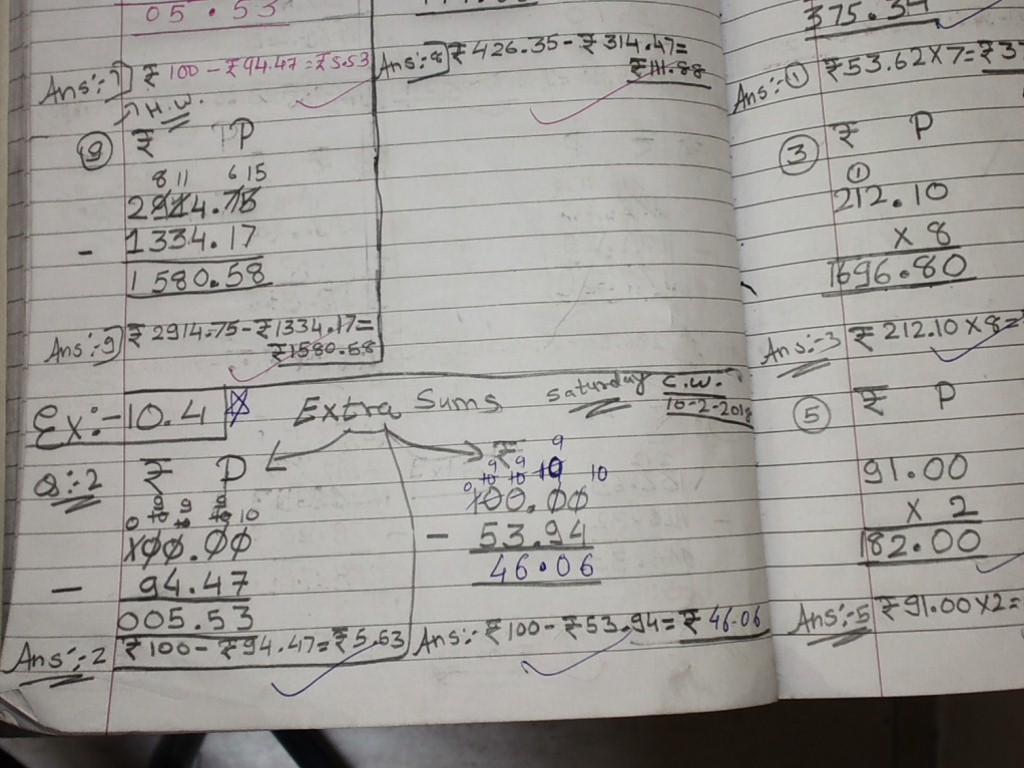 05.53
Ans:-7) ₹100 - ₹94.47 = ₹5.53
H.W.
9 ₹ P
8 11 6 15
2914.75
- 1334.17
1580.58
Ans:-9) ₹2914.75 - ₹1334.17 =
₹1580.58
Ans:-8) ₹426.35 - ₹314.47 =
₹111.88
Ex:- 10.4 Extra Sums Saturday C.W.
10-2-2018
Q:-2 ₹ P
9 9 9
0 10 10 10 10
100.00
- 94.47
005.53
Ans:-2 ₹100 - ₹94.47 = ₹5.53
₹
9 9 9
0 10 10 10 10
100.00
- 53.94
46.06
Ans:- ₹100 - ₹53.94 = ₹46.06
375.34
Ans:-1 ₹53.62 × 7 = ₹3
3 ₹ P
1
212.10
× 8
1696.80
Ans:-3 ₹212.10 × 8 =
5 ₹ P
91.00
× 2
182.00
Ans:-5 ₹91.00 × 2 =